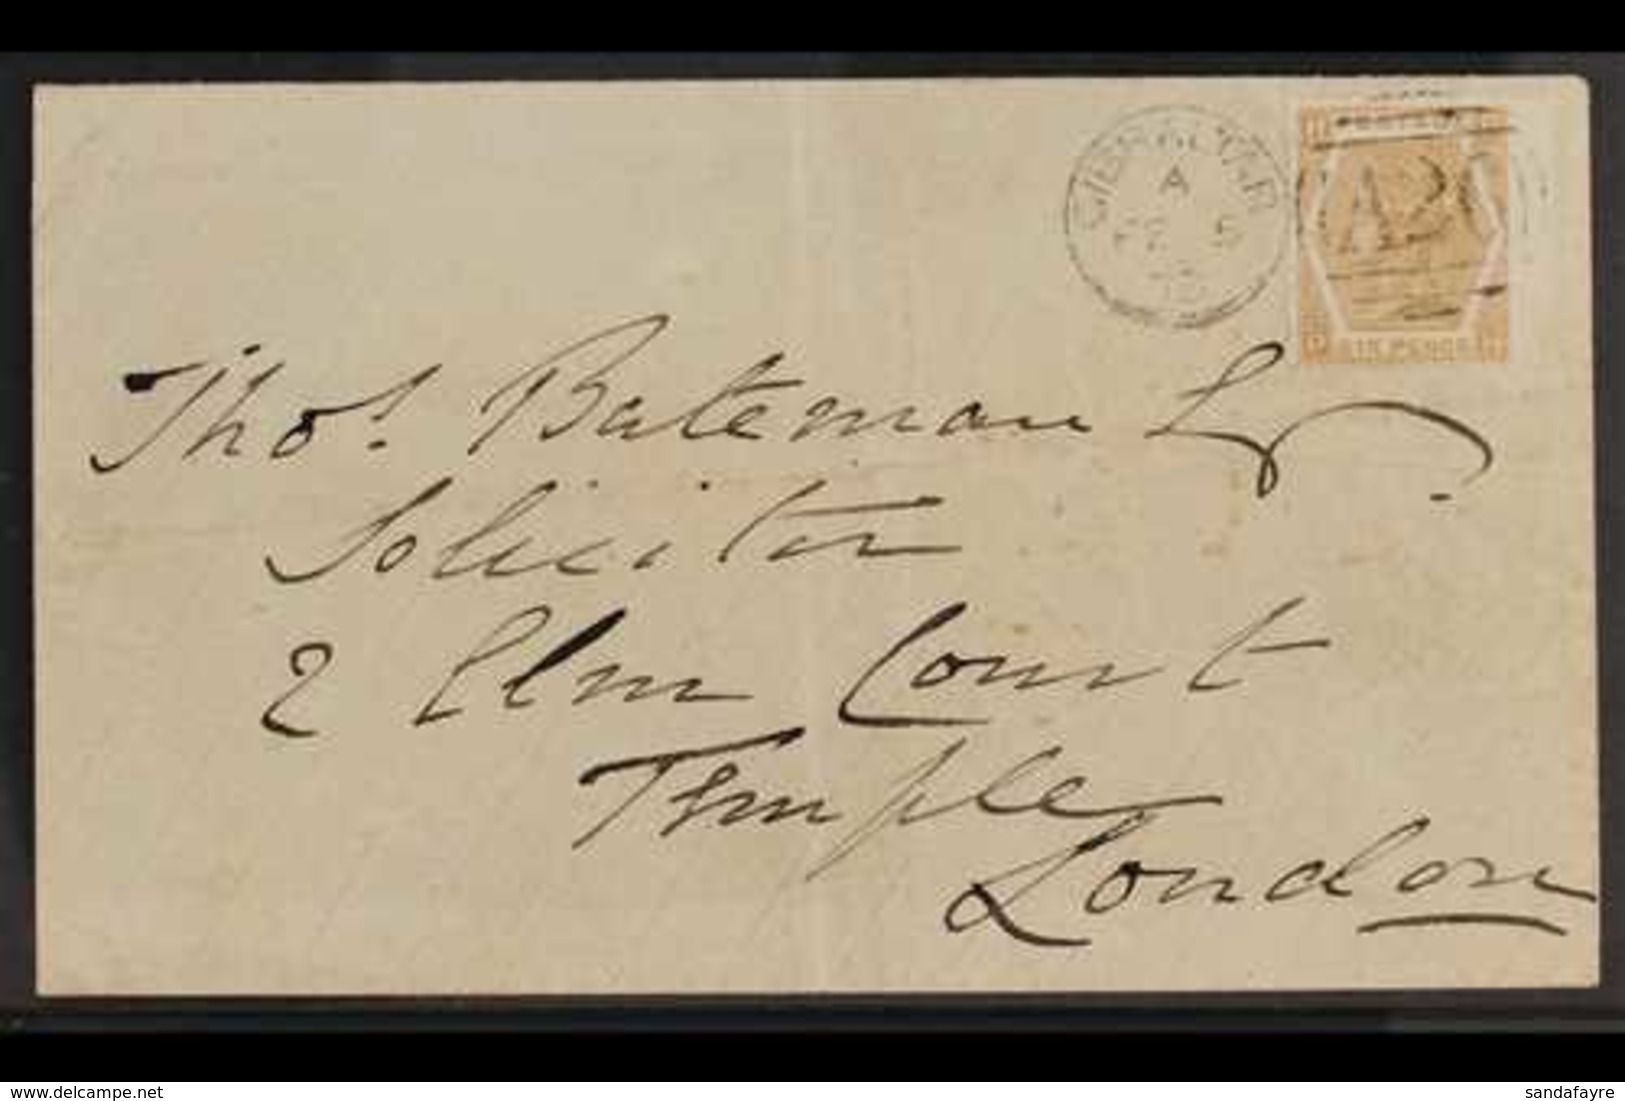 GIBRALTAR
A
FE 5
A26
SIX PENCE
Thos. Bateman
Solicitor
2 Elm Court
Temple
London
www.delcampe.net
sandafayre